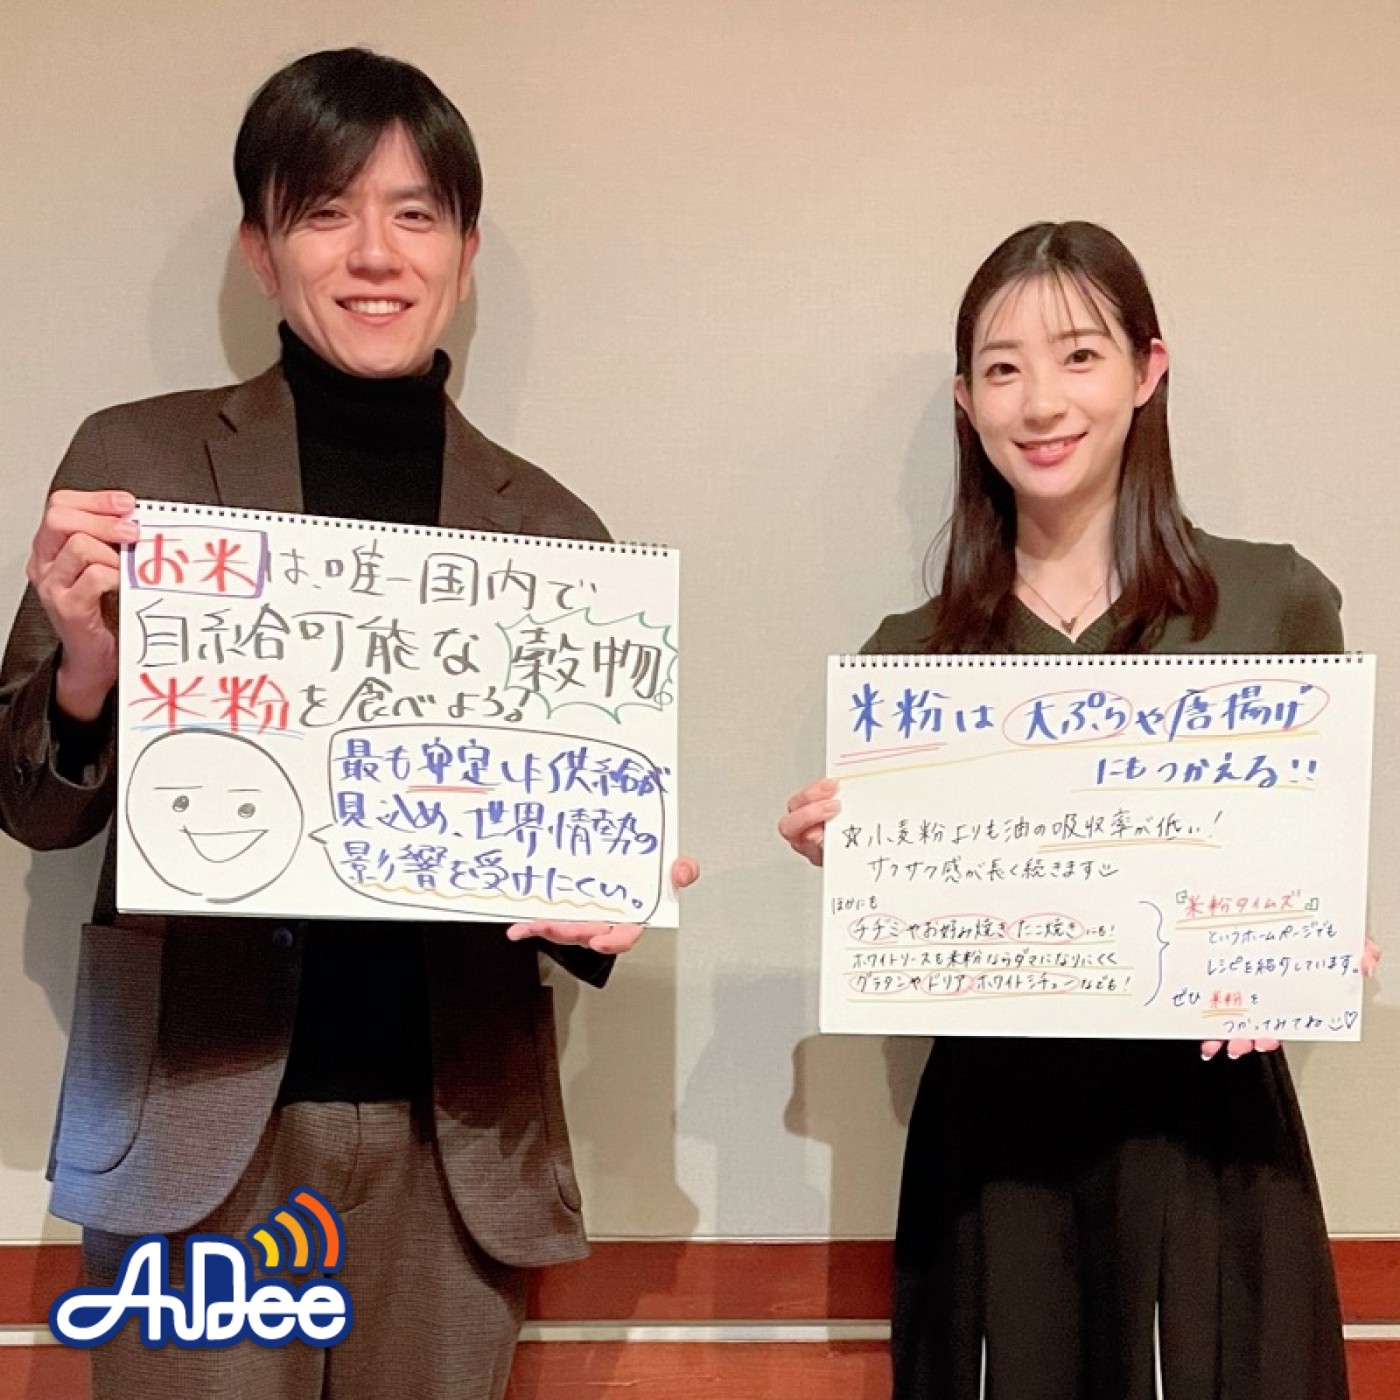 お米は、唯一国内で
自給可能な穀物。
米粉を食べよう!
最も安定した供給が
見込め、世界情勢の
影響を受けにくい。
米粉は天ぷらや唐揚げ
にもつかえる!!
☆小麦粉よりも油の吸収率が低い!
サクサク感が長く続きます
ほかにも
チヂミやお好み焼き たこ焼きにも!
ホワイトソースも米粉ならダマになりにくく
グラタンやドリア ホワイトシチューなども!
『米粉タイムズ』
というホームページでも
レシピを紹介しています。
ぜひ 米粉を
つかってみてね♡
AuDee